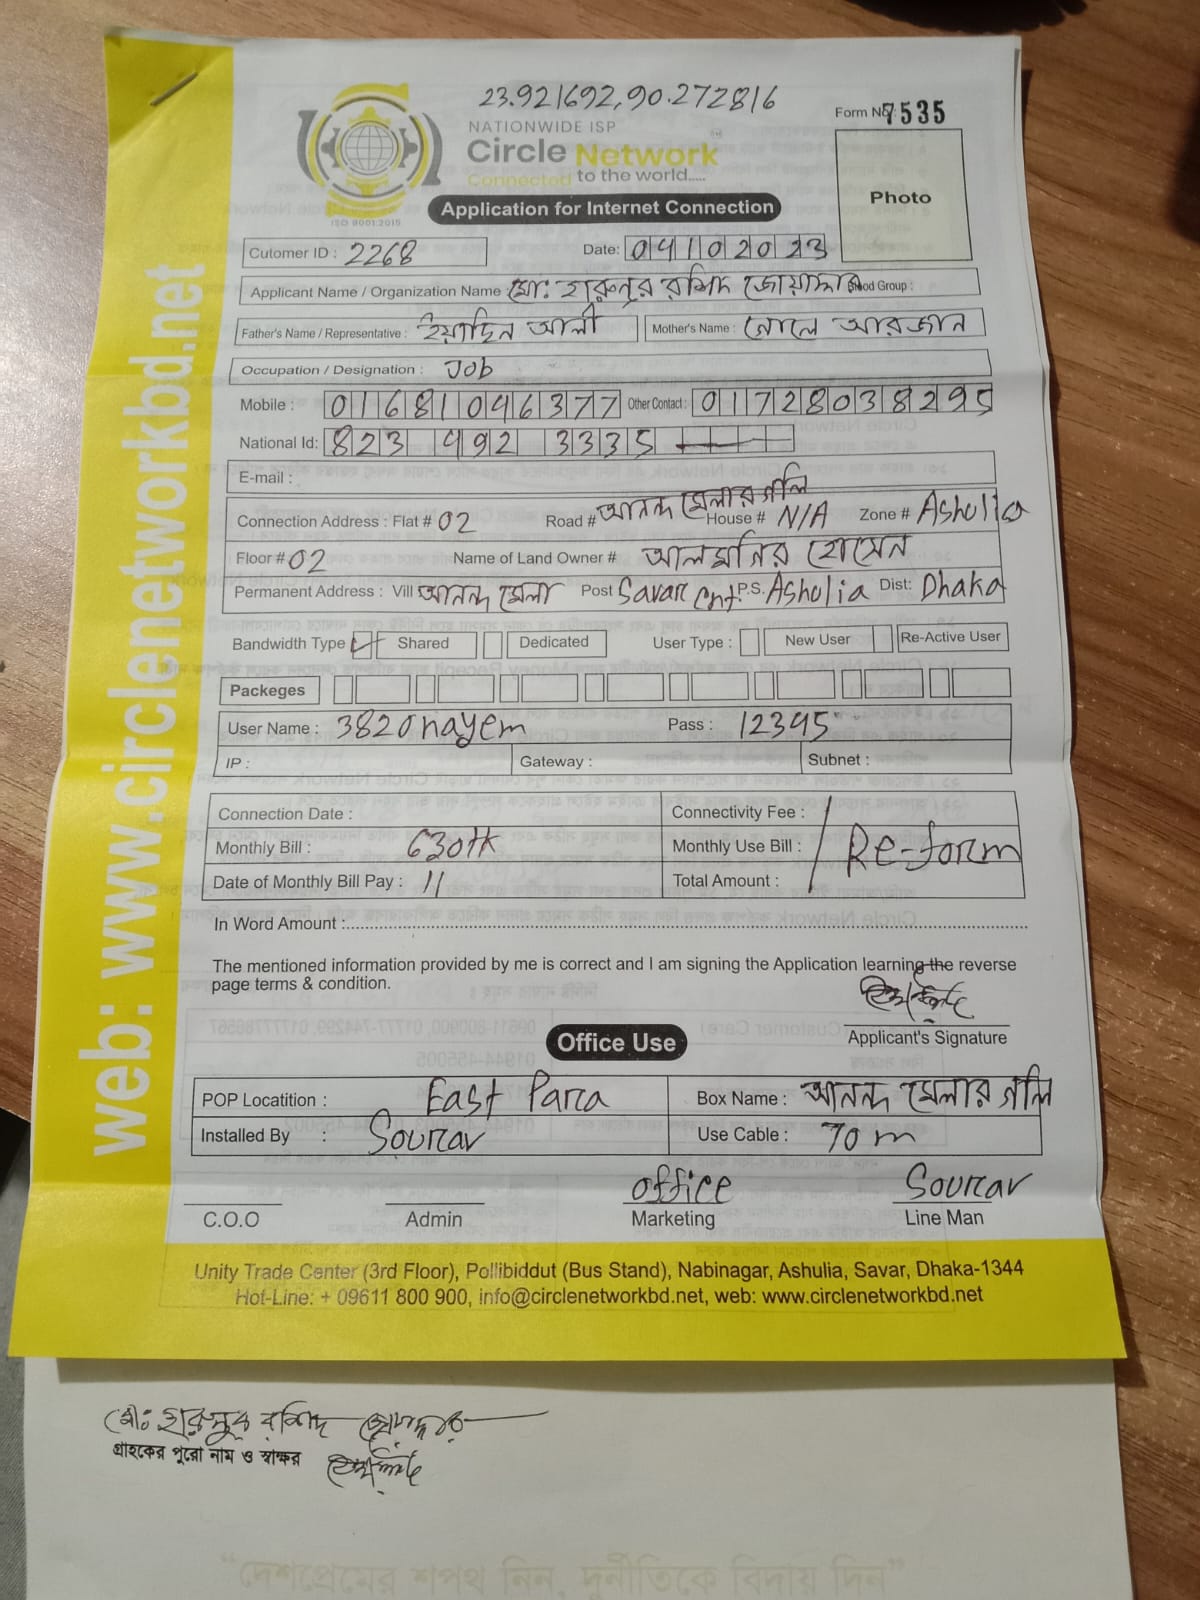 23.921692,90.272816
Form No. 7535
NATIONWIDE ISP
Circle Network
Connected to the world.....
ISO 9001:2015
Photo
Application for Internet Connection
Cutomer ID : 2268 Date: 04102023
Applicant Name / Organization Name মো: হারুনুর রশিদ জোয়াদ্দার Blood Group :
Father's Name / Representative : ইয়াছিন আলী Mother's Name : নোলে আরজান
Occupation / Designation : Job
Mobile : 01681046377 Other Contact : 01728038295
National Id: 823 492 3335
E-mail :
Connection Address : Flat # 02 Road # আনন্দ মেলার গলি House # N/A Zone # Ashulia
Floor # 02 Name of Land Owner # আলমনির হোসেন
Permanent Address : Vill আনন্দ মেলা Post Savar Cnt P.S. Ashulia Dist: Dhaka
Bandwidth Type Shared Dedicated User Type : New User Re-Active User
Packeges
User Name : 3820nayem Pass : 12345
IP : Gateway : Subnet :
Connection Date : Connectivity Fee :
Monthly Bill : 630tk Monthly Use Bill : Re-form
Date of Monthly Bill Pay : 11 Total Amount :
In Word Amount :
The mentioned information provided by me is correct and I am signing the Application learning the reverse
page terms & condition.
Applicant's Signature
Office Use
POP Locatition : East Para Box Name : আনন্দ মেলার গলি
Installed By : Sourav Use Cable : 70m
office Sourav
C.O.O Admin Marketing Line Man
Unity Trade Center (3rd Floor), Pollibiddut (Bus Stand), Nabinagar, Ashulia, Savar, Dhaka-1344
Hot-Line: + 09611 800 900, info@circlenetworkbd.net, web: www.circlenetworkbd.net
web: www.circlenetworkbd.net
মো: হারুনুর রশিদ জোয়াদ্দার
গ্রাহকের পুরো নাম ও স্বাক্ষর
“দেশপ্রেমের শপথ নিন, দুর্নীতিকে বিদায় দিন”